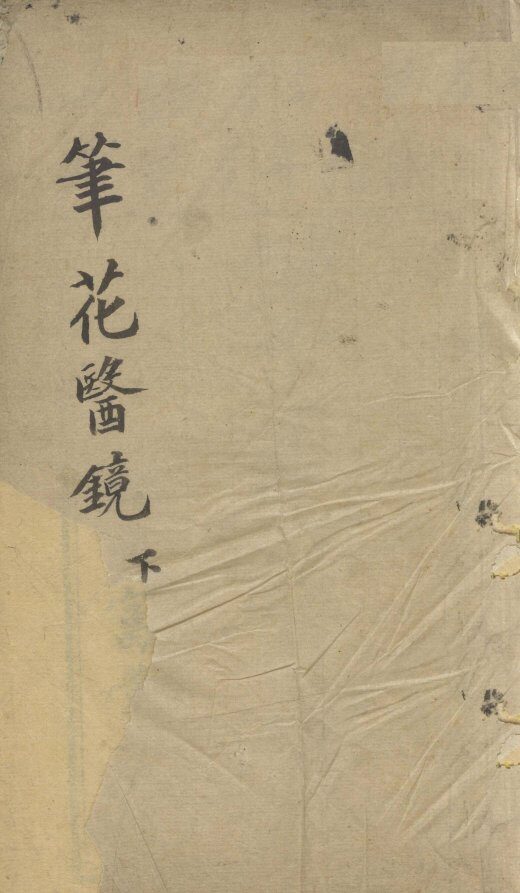 筆花醫鏡下